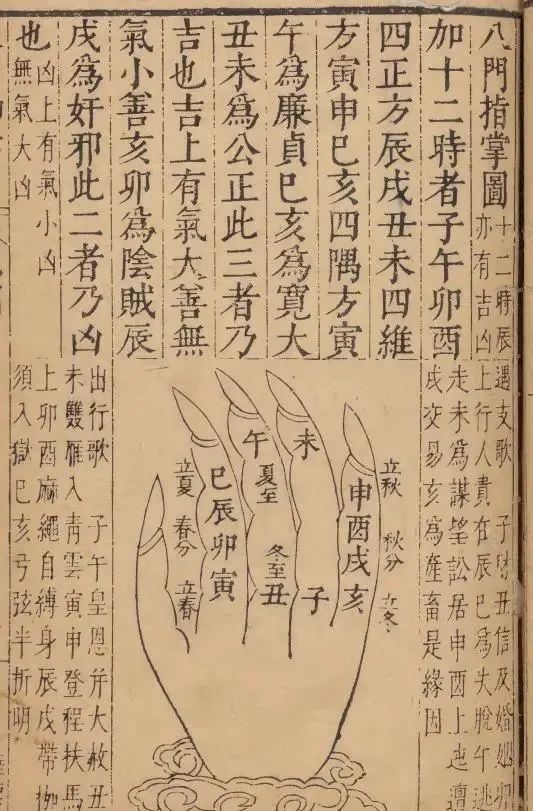 八門指掌圖 十二時辰
亦有吉凶
加十二時者子午卯酉
四正方辰戌丑未四維
方寅申巳亥四隅方寅
午爲廉貞巳亥爲寬大
丑未爲公正此三者乃
吉也吉上有氣大善無
氣小善亥卯爲陰賊辰
戌爲奸邪此二者乃凶
也 凶上有氣小凶
無氣大凶
遇支歌 子時丑信及婚姻卯
上行人貴在辰巳爲失脫午逃
走未爲謀望訟居申酉上迍邅
戌交易亥爲產畜是緣因
未
午
夏至
冬至
丑
子
申酉戌亥
立秋
秋分
立冬
巳辰卯寅
立夏
春分
立春
出行歌 子午皇恩并大赦丑
未雙雁入青雲寅申登程扶馬
上卯酉麻繩自縛身辰戌帶枷
須入獄巳亥弓弦半折明